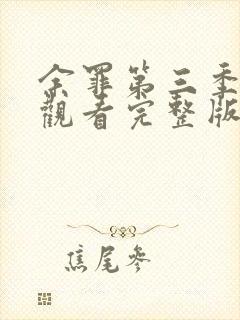 余罪第三季
觀看完整版
焦尾參